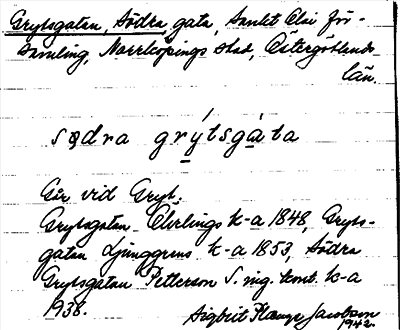 Grytsgatan, Södra, gata, Sankt Olai för-
samling, Norrköpings stad, Östergötlands
län.
södra grýtsgàta
Går vid Gryt.
Grytsgatan Ehrlings k-a 1848, Gryts-
gatan Ljunggrens k-a 1853, Södra
Grytsgatan Petterson S. ing. kont. k-a
1938.
Sigbrit Plaenge Jacobson
1942.